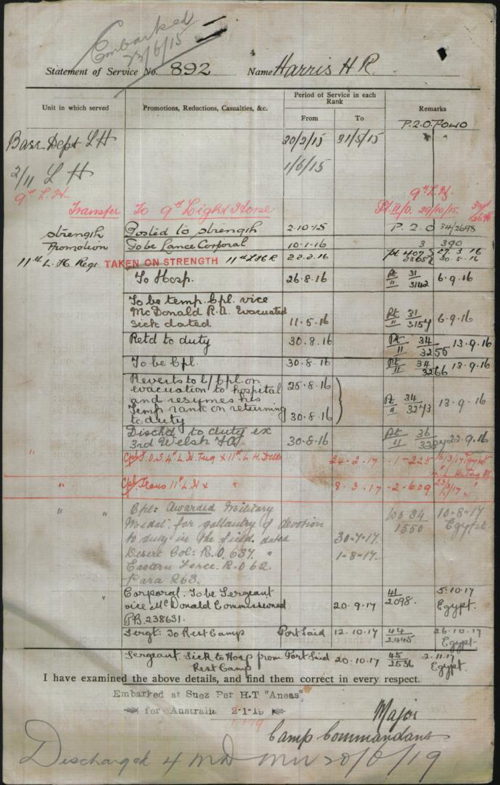 Embarked
23/6/15
Statement of Service No. 892 Name Harris H R.
Unit in which served
Promotions, Reductions, Casualties, &c.
Period of Service in each Rank
From To
Remarks
P.2.O Fowo
Base Dept L H 20/2/15 31/5/15
2/11 L H 1/6/15
9th L.H. 9th L.H.
Transfer To 9th Light Horse Pt II/O. 29/10/15.
strength Posted to strength 2-10-15 P.2.O
Promotion To be Lance Corporal 10-1-16 3 390
11th L. H. Regt TAKEN ON STRENGTH 11th LHR 22.2.16
To Hosp. 26.8.16 Pt II 31/3142 6.9.16
To be temp. Cpl. vice
McDonald R.A. Evacuated
sick dated 11.5.16 Pt II 31/3157 6.9.16
Retd to duty 30.8.16 Pt II 34/3255 13.9.16
To be Cpl. 30.8.16 Pt II 34/3266 13.9.16
Reverts to L/Cpl on 25.8.16
evacuation to hospital
and resumes his Pt II 34 13.9.16
Temp rank on returning
to duty 30.8.16
Dischd to duty ex
3rd Welsh FA 30.8.16 Pt II 36 23.9.16
" Cpl 24-2-17
" Cpl Trans 11th L H 8-3-17 -2-629
" Cpl: Awarded Military
Medal for gallantry & devotion 34/1550 10-8-17
to duty in the field dated 30-7-17. Egypt
Desert Col: R.O. 637. " 1-8-17.
Eastern Force. R.O 62.
Para 263.
" Corporal. To be Sergeant 41/2098. 5.10.17
vice McDonald Commissioned 20.9.17 Egypt.
P.B. 238631.
Sergt. To Rest Camp Port Said 12.10.17 44/2445 26.10.17
Egypt.
Sergeant Sick to Hosp from Port Said 20.10.17 45/2536 2.11.17
Rest Camp Egypt.
I have examined the above details, and find them correct in every respect.
Embarked at Suez Per H.T "Aneas"
for Australia
Major
Camp Commandant
Discharged 4 MD 20/6/19